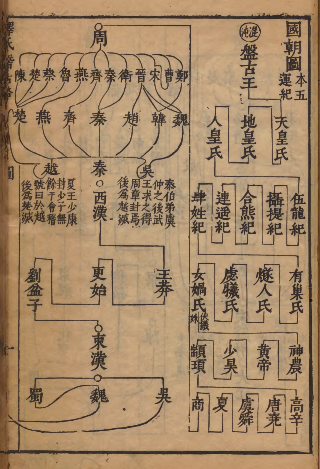 國朝圖
本五運紀
混沌
盤古王
天皇氏
地皇氏
人皇氏
伍龍紀
攝提紀
合熊紀
連逋紀
肆姓紀
有巢氏
燧人氏
處犧氏
女媧氏
伏羲妹
神農
黃帝
少昊
顓頊
高辛
唐堯
虞舜
夏
商
周
鄭
曹
宋
晉
衛
秦
齊
燕
魯
蔡
楚
陳
魏
韓
趙
秦
齊
燕
楚
吳
泰伯弟虞
仲之後武
王求之得
周章封焉
後為越滅
秦
西漢
越
夏王少康
封少子無
餘于會稽
號曰於越
後為楚滅
王莽
更始
劉盆子
東漢
吳
魏
蜀